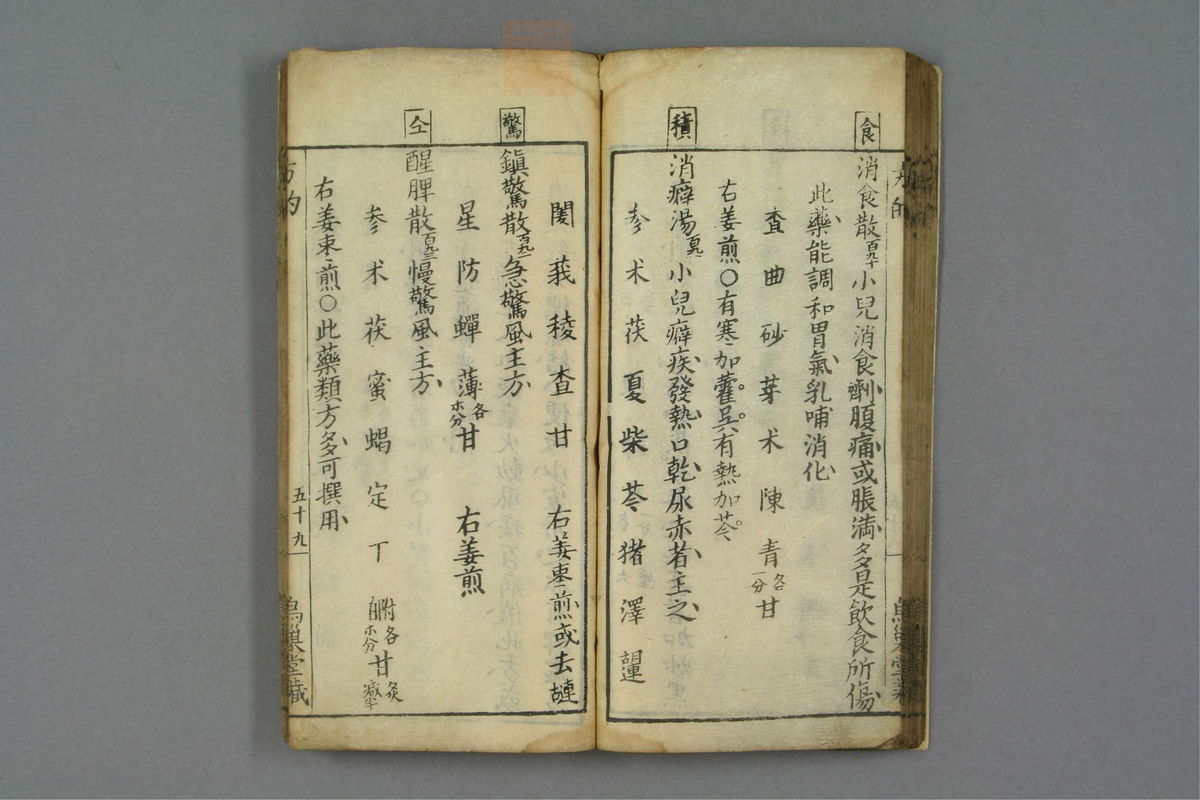 食
消食散百九十小兒消食劑腹痛或脹滿多是飲食所傷
此藥能調和胃氣乳哺消化
査 曲 砂 芽 朮 陳 青各一分 甘
右姜煎○有寒加藿吳有熱加芩
積
消癖湯百九一小兒癖疾發熱口乾尿赤者主之
參 朮 茯 夏 柴 芩 猪 澤 胡連
閣 莪 稜 査 甘 右姜棗煎或去胡連
驚
鎭驚散百九二急驚風主方
星 防 蟬 薄各小分 甘 右姜煎
仝
醒脾散百九三慢驚風主方
参 朮 茯 蜜 蝎 定 丁 白附各小分 甘炙減半
右姜棗煎○此藥類方多可撰用
方的
五十九
烏巢堂藏